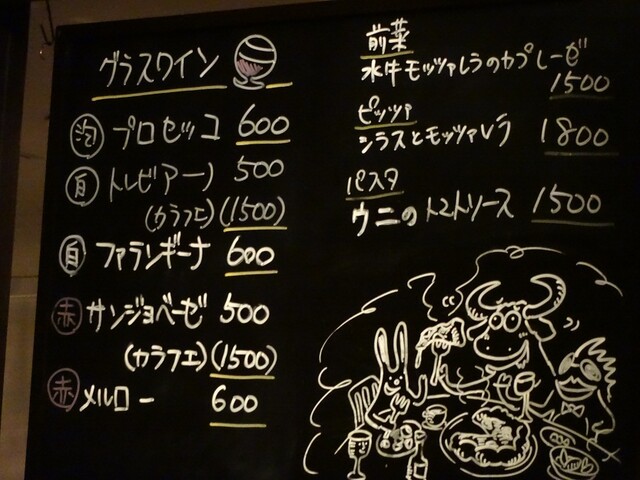 グラスワイン
泡 プロセッコ 600
白 トレビアーノ 500
(カラフェ)(1500)
白 ファランギーナ 600
赤 サンジョベーゼ 500
(カラフェ)(1500)
赤 メルロー 600
前菜
水牛モッツァレラのカプレーゼ
1500
ピッツァ
シラスとモッツァレラ 1800
パスタ
ウニのトマトソース 1500